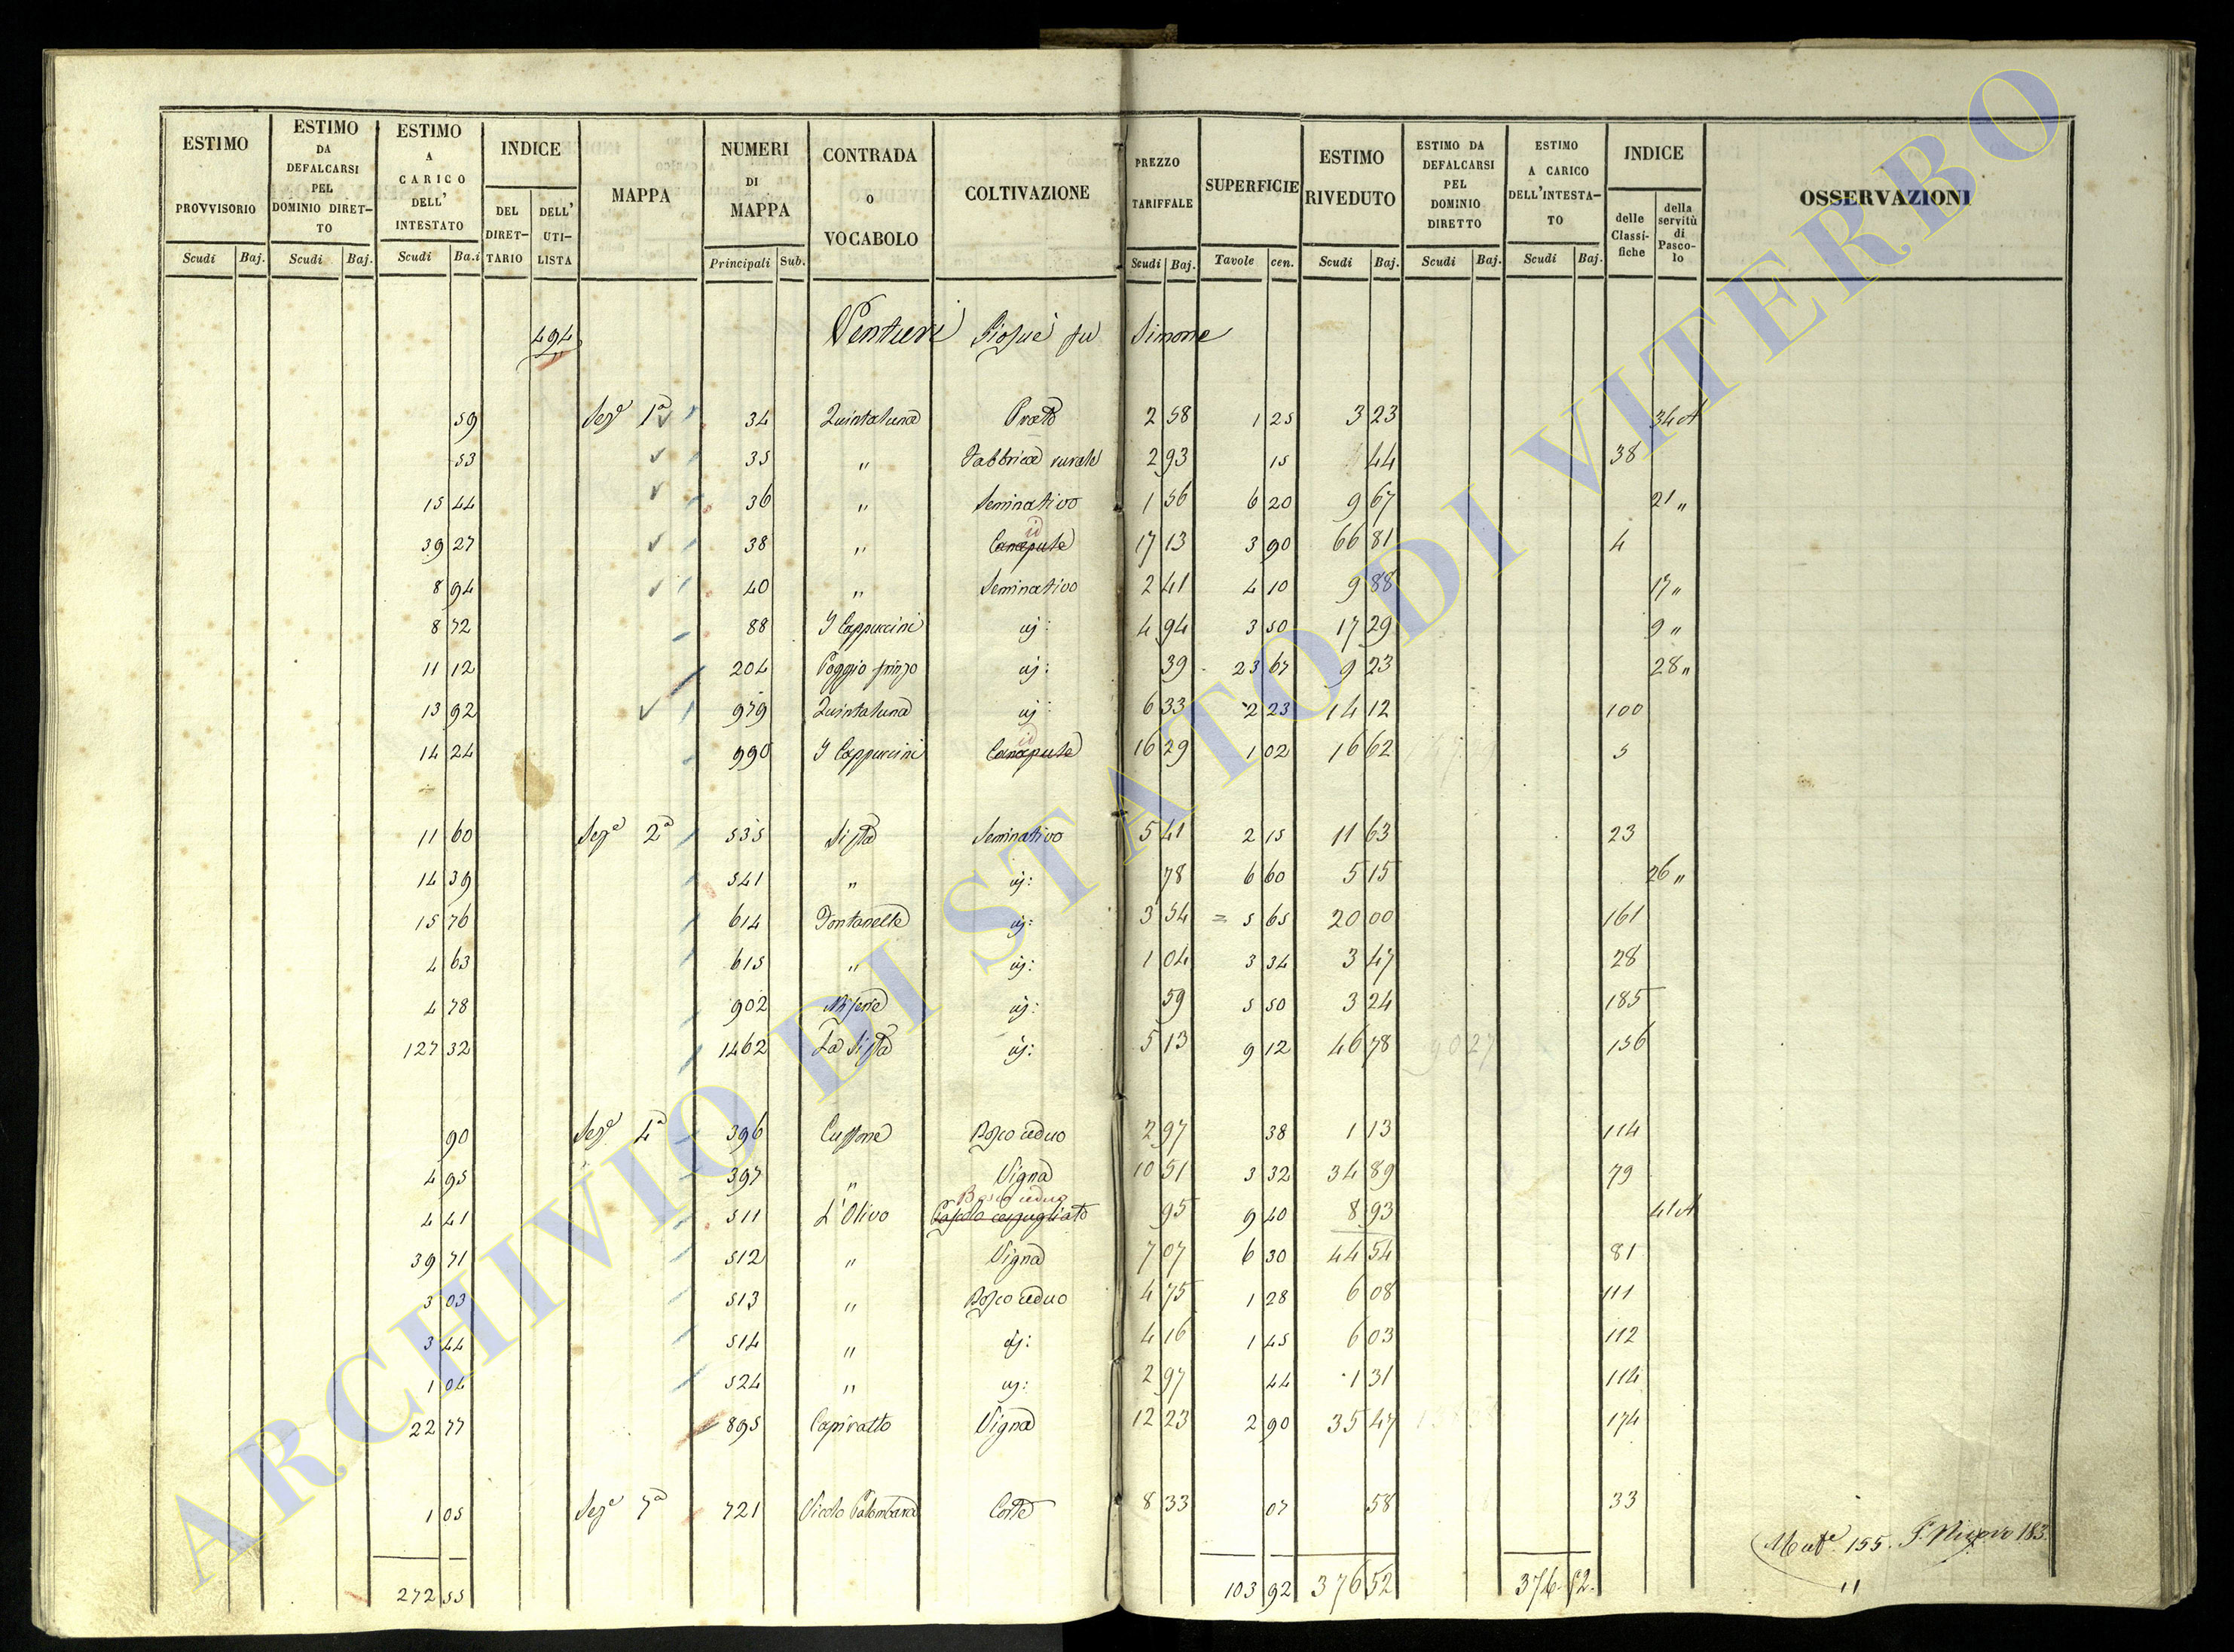 ESTIMO PROVVISORIO Scudi Baj.
ESTIMO DA DEFALCARSI PEL DOMINIO DIRET-TO Scudi Baj.
ESTIMO A CARICO DELL' INTESTATO Scudi Ba.i
INDICE DEL DIRET-TARIO DELL' UTI-LISTA
MAPPA
NUMERI DI MAPPA Principali Sub.
CONTRADA O VOCABOLO
COLTIVAZIONE
PREZZO TARIFFALE Scudi Baj.
SUPERFICIE Tavole cen.
ESTIMO RIVEDUTO Scudi Baj.
ESTIMO DA DEFALCARSI PEL DOMINIO DIRETTO Scudi Baj.
ESTIMO A CARICO DELL'INTESTA-TO Scudi Baj.
INDICE delle Classi-fiche della servitù di Pasco-lo
OSSERVAZIONI
494 Venturi Giosuè fu Simone
59 Sez.e 1a 34 Quintaluna Prato 2 58 1 25 3 23 34 A
53 35 " Fabbrica rurale 2 93 15 44 38
15 44 36 " Seminativo 1 56 6 20 9 67 21 "
39 27 38 " Canapule id 17 13 3 90 66 81 4
8 94 40 " Seminativo 2 41 4 10 9 88 17 "
8 72 88 I Cappuccini id: 4 94 3 50 17 29 9 "
11 12 204 Poggio id: 39 23 67 9 23 28 "
13 92 979 Quintaluna id: 6 33 2 23 14 12 100
14 24 990 I Cappuccini Canapule id 16 29 1 02 16 62 5
11 60 Sez.e 2a 535 Sista Seminativo 5 41 2 15 11 63 23
14 39 541 " id: 78 6 60 5 15 26 "
15 76 614 Fontanelle id: 3 54 = 5 65 20 00 161
4 63 615 " id: 1 04 3 34 3 47 28
4 78 902 id: 59 5 50 3 24 185
127 32 1462 La Sista id: 5 13 9 12 46 78 90 27 136
90 Sez.e 4a 396 Bosco ceduo 2 97 38 1 13 114
4 95 397 " Vigna 10 51 3 32 34 89 79
Bosco ceduo
4 41 511 L'Olivo Pascolo cespugliato 95 9 40 8 93 41 A
39 71 512 " Vigna 7 07 6 30 44 54 81
3 03 513 " Bosco ceduo 4 75 1 28 6 08 111
3 44 514 " id: 4 16 1 45 6 03 112
1 04 524 " id: 2 97 44 1 31 114
22 77 895 Capiratto Vigna 12 23 2 90 35 47 174
1 05 Sez.e 7a 721 Vicolo Palombara Corte 8 33 07 58 33
Mut.e 155. P. Nuovo 183.
272 55 103 92 376 52 376. 52. "
ARCHIVIO DI STATO DI VITERBO